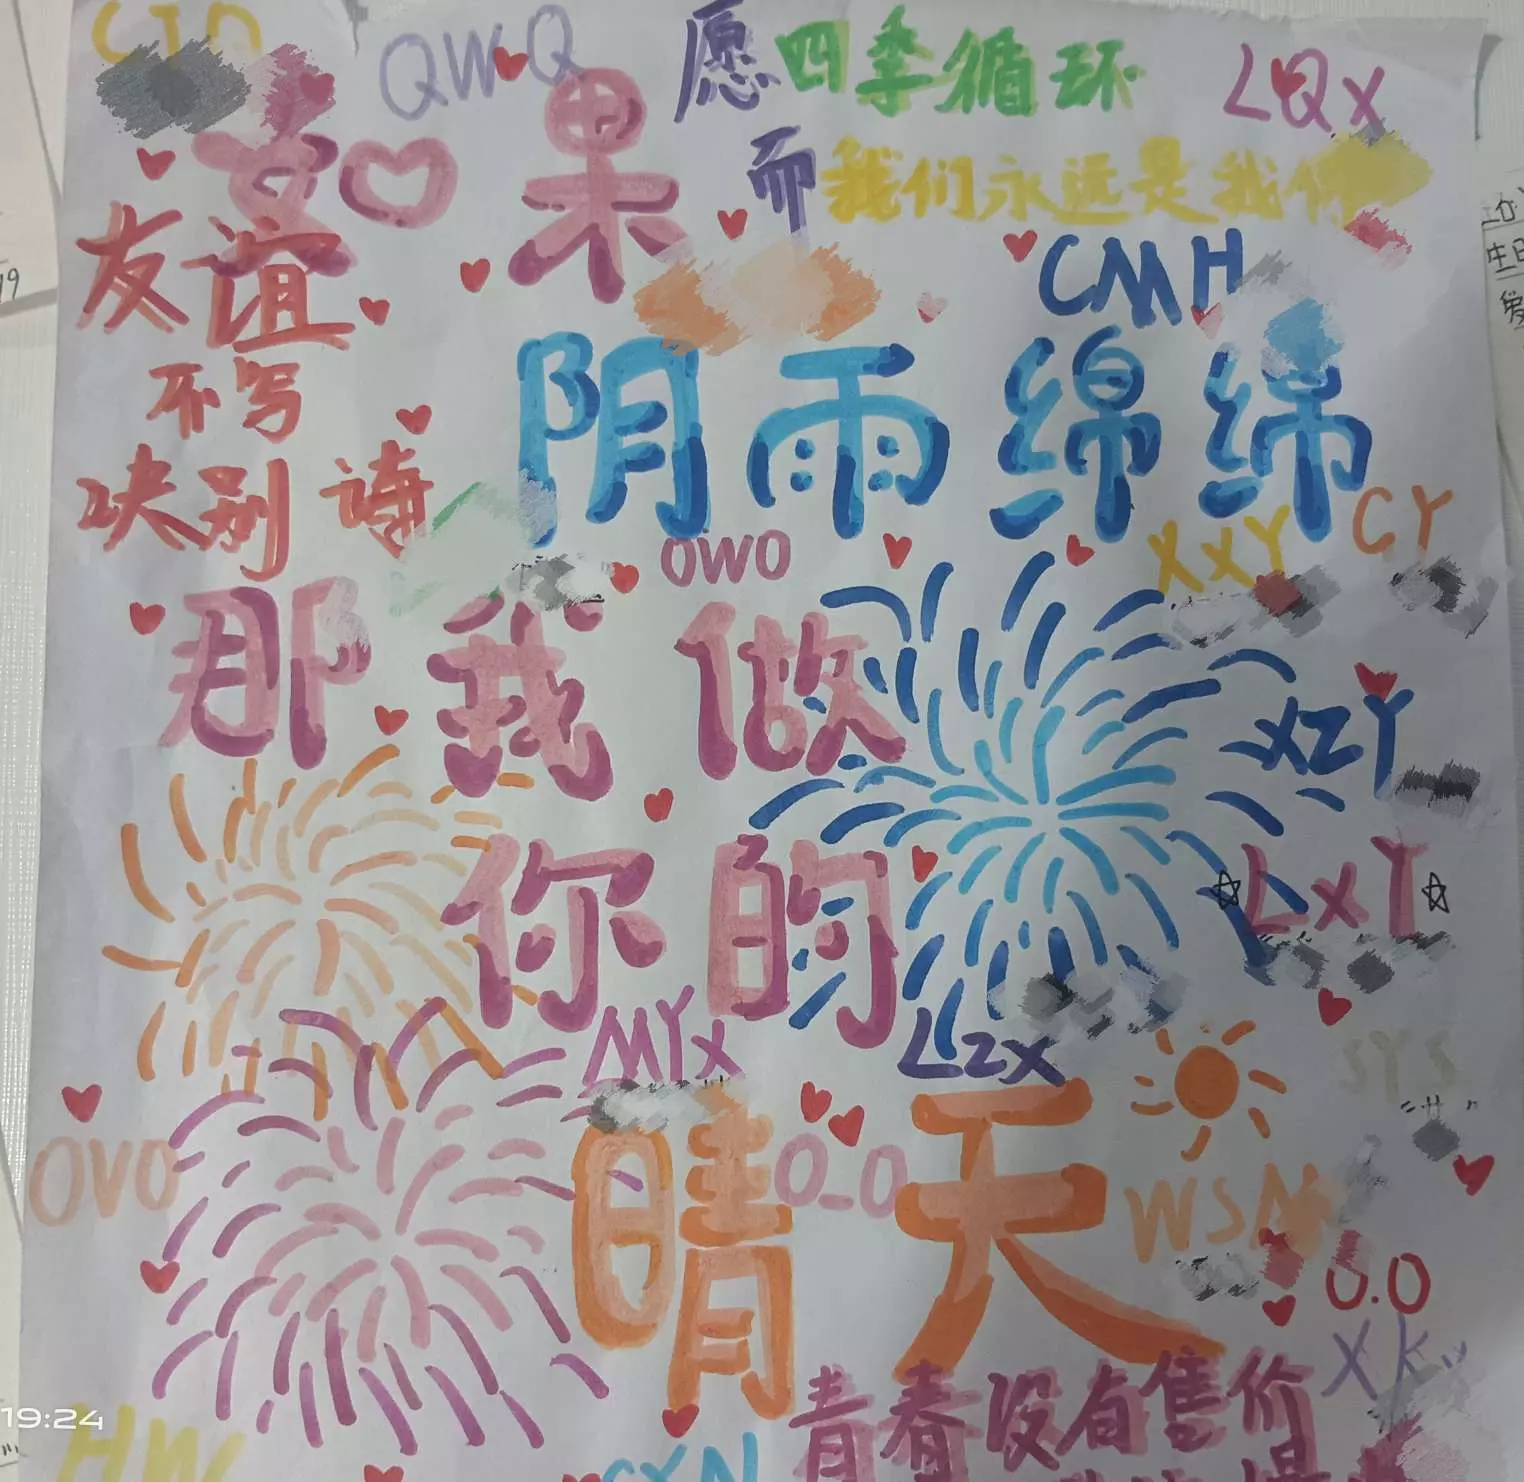 QWQ
愿四季循环
LQX
如果
而我们永远是我们
友谊
CMH
不写
诀别诗
阴雨绵绵
OWO
XXY
CY
那我做
XZY
你的
LXY
MYX
LZX
SYS
晴天
OVO
O_O
WSN
O.O
青春没有售价
HW
19:24